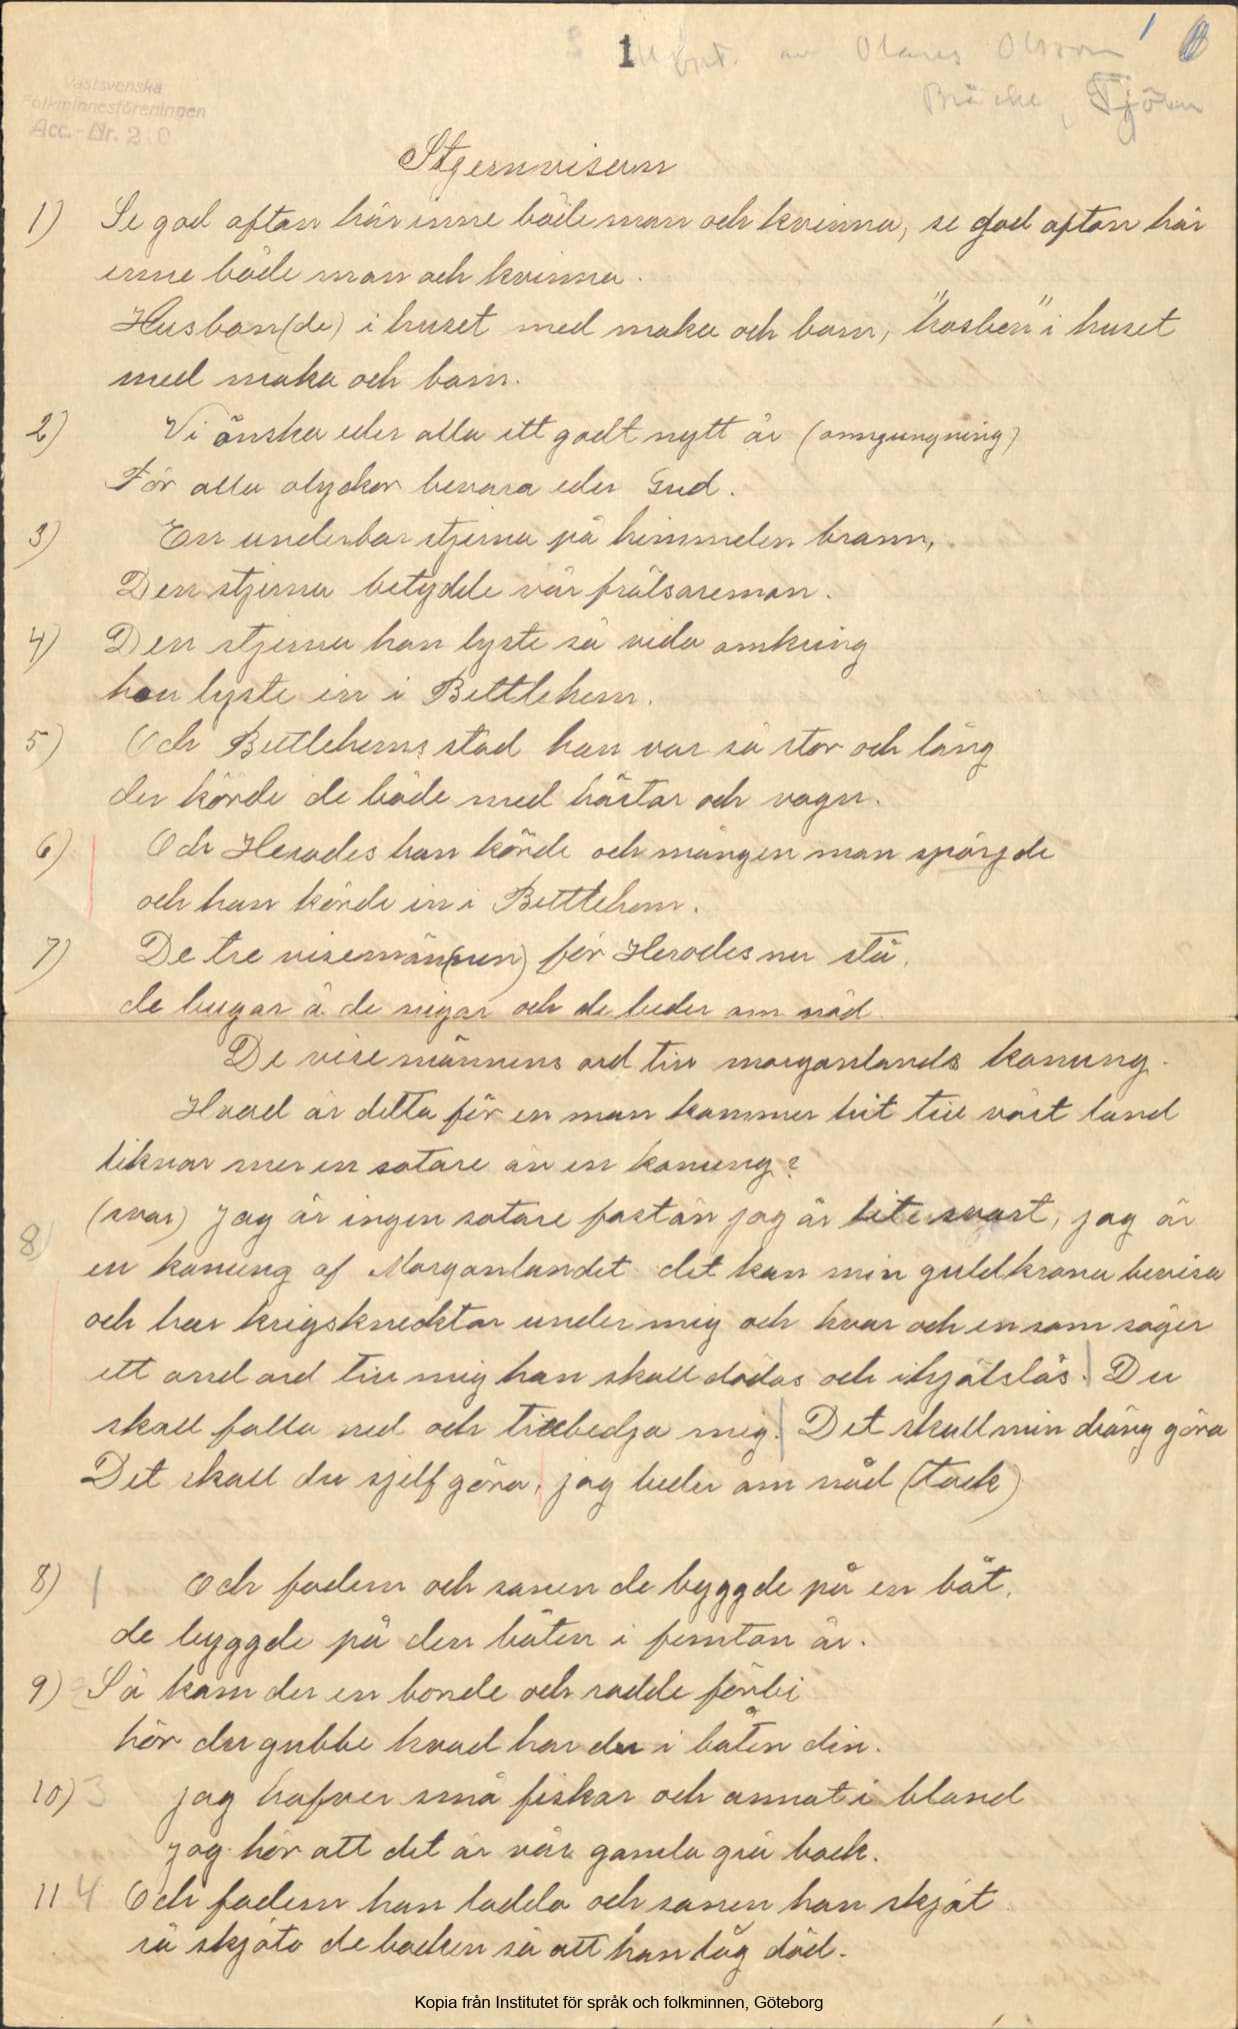 1
av Olaus Olsson
Bräcke, Tjörn
Västsvenska
Folkminnesföreningen
Acc.-Nr. 20
Stjernvisan
1) Se god afton här inne både man och kvinna, se god afton här
inne både man och kvinna.
Husbon(de) i huset med maka och barn, "hosben" i huset
med maka och barn.
2) Vi önska eder alla ett godt nytt år (omgungning)
För alla olyckor bevara eder Gud.
3) En underbar stjerna på himmelen brann,
Den stjerna betydde vår frälsareman.
4) Den stjerna han lyste så vida omkring
han lyste in i Bettlehem.
5) Och Bettlehems stad han var så stor och lång
der körde de både med hästar och vagn.
6) Och Herodes han körde och mången man spörjde
och han körde in i Bettlehem.
7) De tre visemän(nen) för Herodes nu stå,
de bugar å de nigar och de beder om nåd
De visemännens ord till morgonlands konung.
Hvad är detta för en man kommer hit till vårt land
liknar mer en sotare än en konung?
8) (svar) jag är ingen sotare fastän jag är lite svart, jag är
en konung af Morgonlandet det kan min guldkrona bevisa
och har krigsknecktar under mig och hvar och en som säger
ett ond ord till mig han skall dödas och ihjälslås. Du
skall falla ned och tillbedja mig. Det skall min dräng göra
Det skall du sjelf göra, jag beder om nåd (tack)
8) 1 Och fadern och sonen de byggde på en båt,
de byggde på den båten i femton år.
9) 2 Så kom der en bonde och rodde förbi
hör du gubbe hvad har du i båten din.
10) 3 jag hafver små fiskar och annat i bland
jag hör att det är vår gamla grå bock.
11 4 Och fadern han ladda och sonen han skjöt
så skjöto de bocken så att han låg död.
Kopia från Institutet för språk och folkminnen, Göteborg